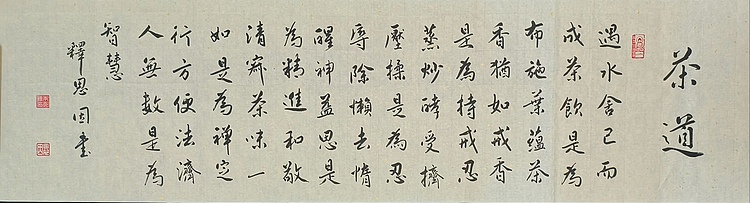 茶道
遇水舍己而
成茶飲是為
布施葉蘊茶
香猶如戒香
是為持戒忍
蒸炒酵受擠
壓揉是為忍
辱除懶去惰
醒神益思是
為精進和敬
清寂茶味一
如是為禪定
行方便法濟
人無數是為
智慧
釋